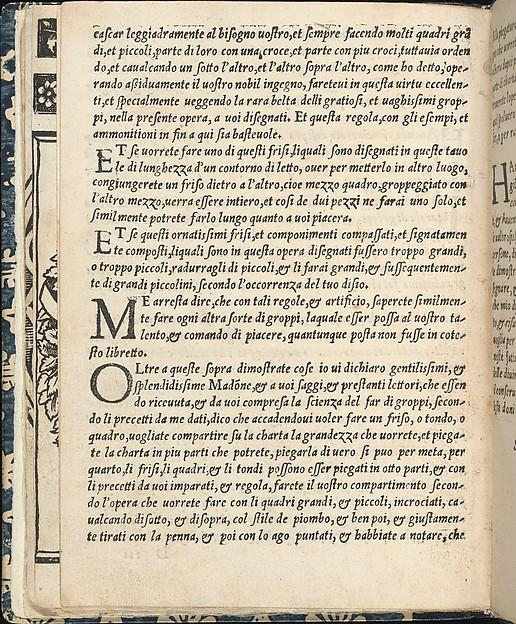 cascar leggiadramente al bisogno uostro,et sempre facendo molti quadri grā
di,et piccoli,parte di loro con una croce,et parte con piu croci,tuttauia orden
do,et caualcando un sotto l'altro,et l'altro sopra l'altro, come ho detto, ope-
rando aßiduamente il uostro nobil ingegno, fareteui in questa uirtu eccellen-
ti,et specialmente ueggendo la rara belta delli gratiosi, et uaghissimi grop-
pi, nella presente opera, a uoi disegnati. Et questa regola,con gli esempi, et
ammonitioni in fin a qui sia basteuole.
ET se uorrete fare uno di questi frisi,liquali sono disegnati in queste tauo
le di lunghezza d'un contorno di letto, ouer per metterlo in altro luogo,
congiungerete un friso dietro a l'altro,cioe mezzo quadro,groppeggiato con
l'altro mezzo,uerra essere intiero,et cosi de dui pezzi ne farai uno solo,et
similmente potrete farlo lungo quanto a uoi piacera.
ET se questi ornatissimi frisi,et componimenti compassati,et signatamen
te composti,liquali sono in questa opera disegnati fussero troppo grandi,
o troppo piccoli,radurragli di piccoli,& li farai grandi,& sussequentemen-
te di grandi piccolini, secondo l'occorrenza del tuo disio.
ME arresta dire,che con tali regole,& artificio, saperete similmen-
te fare ogni altra sorte di groppi, laquale esser possa al uostro ta-
lento,& comando di piacere, quantunque posta non fusse in cote-
sto libretto.
OLtre a queste sopra dimostrate cose io ui dichiaro gentilissimi, &
splendidissime Madōne,& a uoi saggi,& prestanti lettori,che essen
do riceuuta,& da uoi compresa la scienza del far di groppi, secon-
do li precetti da me dati,dico che accadendoui uoler fare un friso, o tondo, o
quadro,uogliate compartire su la charta la grandezza che uorrete,et piega-
te la charta in piu parti che potrete, piegarla di uero si puo per meta, per
quarto,li frisi,li quadri,& li tondi possono esser piegati in otto parti,& con
li precetti da uoi imparati, & regola, farete il uostro compartimento secon-
do l'opera che uorrete fare con li quadri grandi, & piccoli, incrociati, ca-
ualcando disotto, & disopra, col stile de piombo, & ben poi, & giustamen-
te tirati con la penna, & poi con lo ago puntati, & habbiate a notare, che